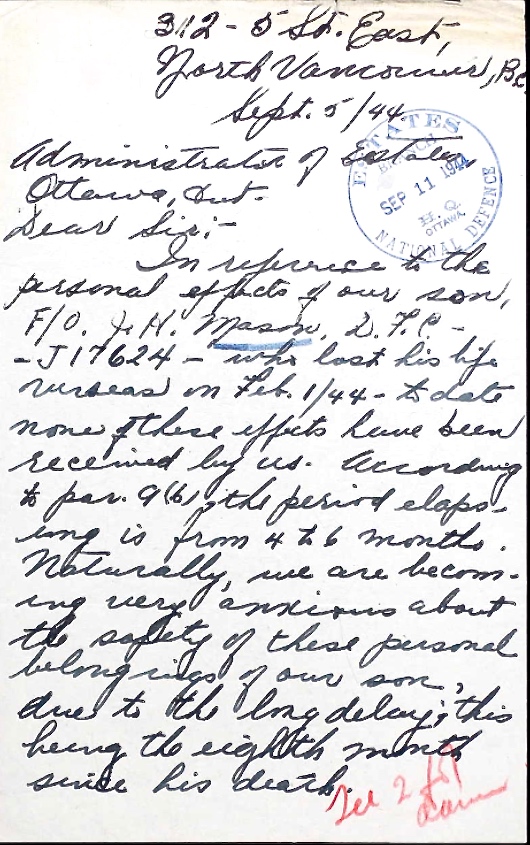 312 - 5 St. East,
North Vancouver, B.C.
Sept. 5/44
Administrator of Estates
Ottawa, Ont.
Dear Sir:-
In reference to the
personal effects of our son,
F/O. J. H. Mason, D.F.C. -
- J17624 - who lost his life
overseas on Feb. 1/44 - to date
none of these effects have been
received by us. According
to par. 9(b), the period elaps-
ing is from 4 to 6 months.
Naturally, we are becom-
ing very anxious about
the safety of these personal
belongings of our son,
due to the long delay; this
being the eighth month
since his death.
ESTATES
BRANCH
SEP 11 1944
H.Q.
OTTAWA
NATIONAL DEFENCE